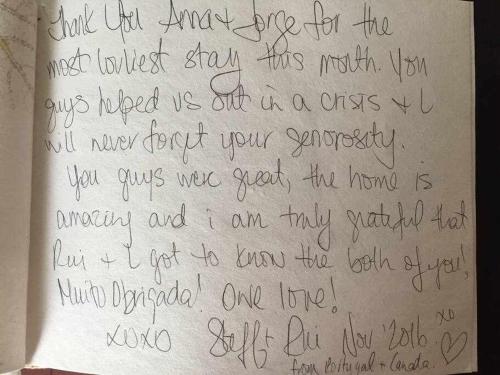 Thank You Anna + Jorge for the
most lovliest stay this month. You
guys helped us out in a crisis + I
will never forget your generosity.
You guys were great, the home is
amazing and i am truly grateful that
Rui + I got to know the both of you!
Muito Obrigada! One love!
xoxo Steff + Rui Nov '2016 xo
from Portugal + Canada.